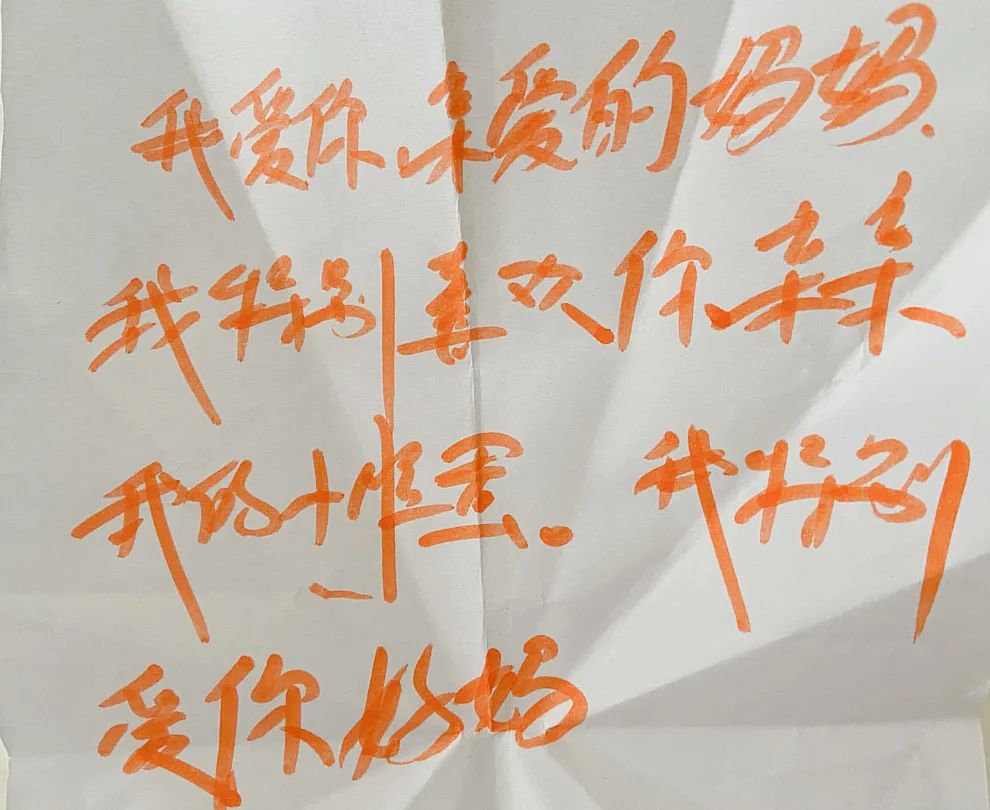 我爱你亲爱的妈妈.
我特别喜欢你亲亲
我的小脸蛋。 我特别
爱你妈妈